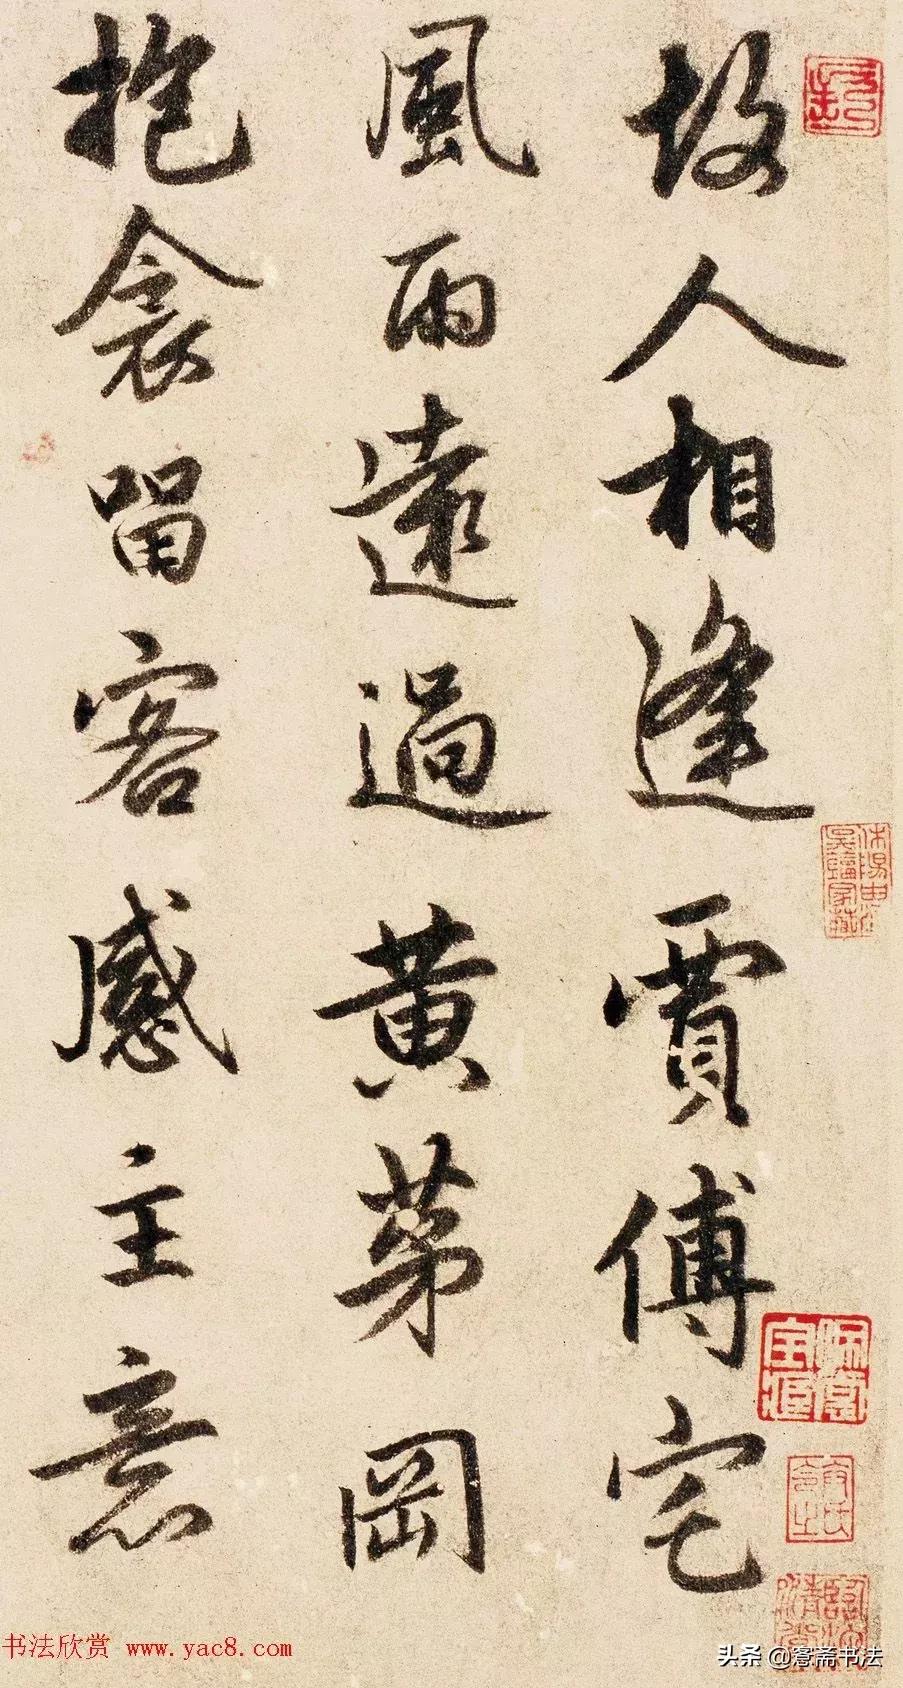 故人相逢賈傅宅
風雨遠過黄茅岡
抱衾留客感主意
书法欣赏 www.yac8.com
头条 @寋斋书法